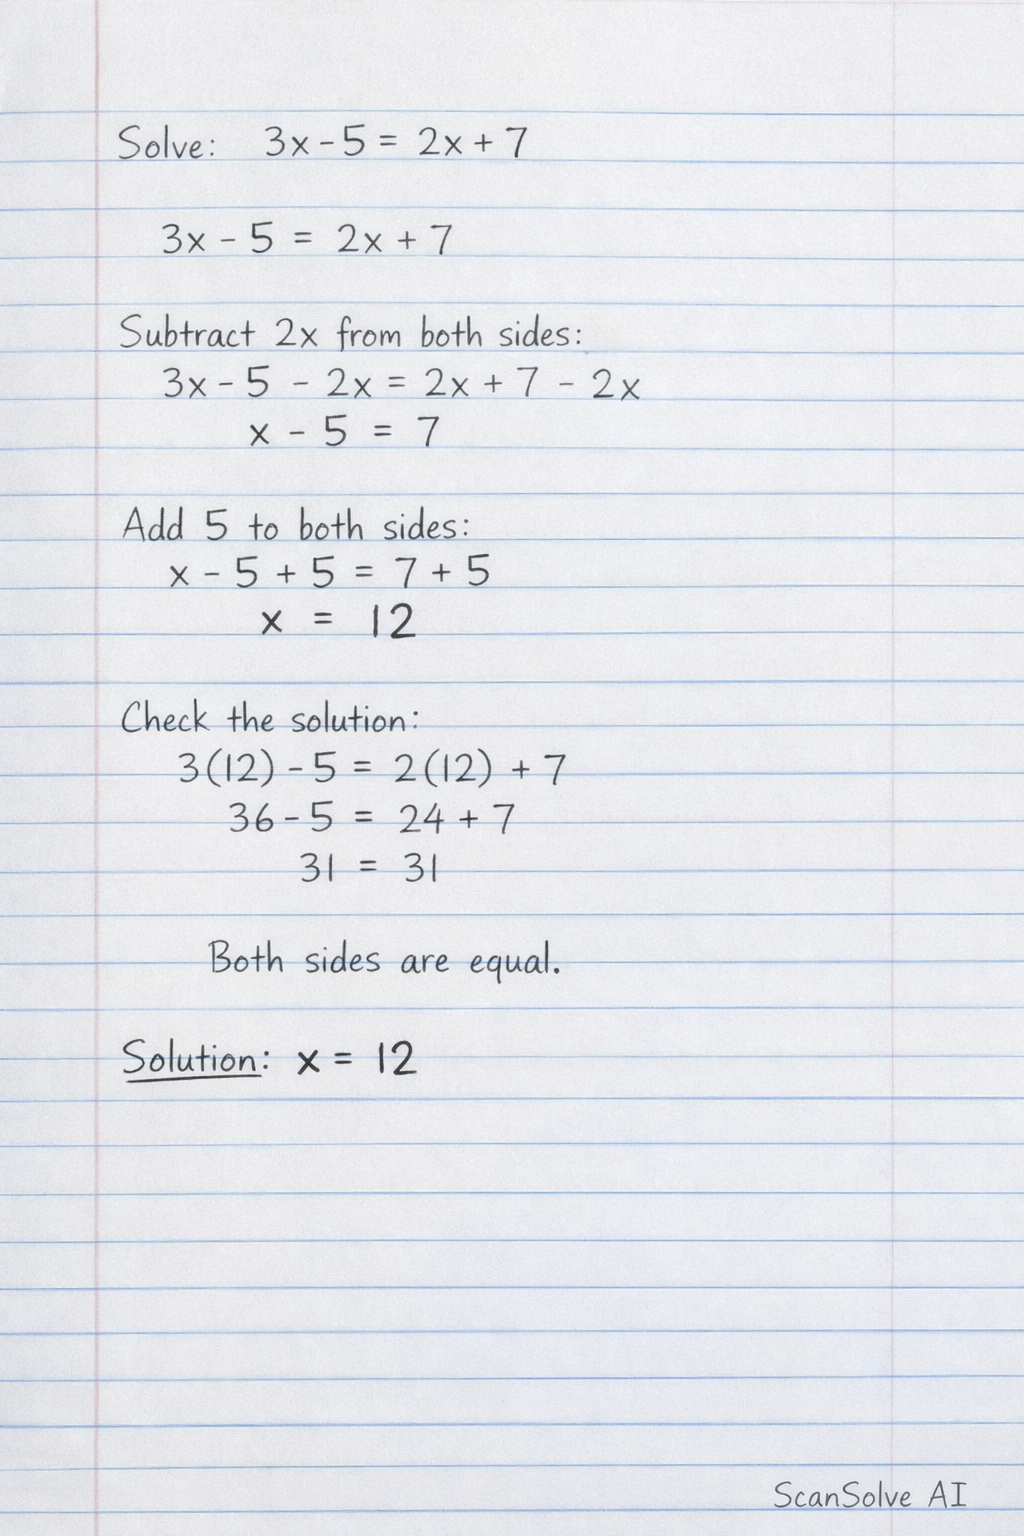 Solve: 3x - 5 = 2x + 7
3x - 5 = 2x + 7
Subtract 2x from both sides:
3x - 5 - 2x = 2x + 7 - 2x
x - 5 = 7
Add 5 to both sides:
x - 5 + 5 = 7 + 5
x = 12
Check the solution:
3(12) - 5 = 2(12) + 7
36 - 5 = 24 + 7
31 = 31
Both sides are equal.
Solution: x = 12
ScanSolve AI